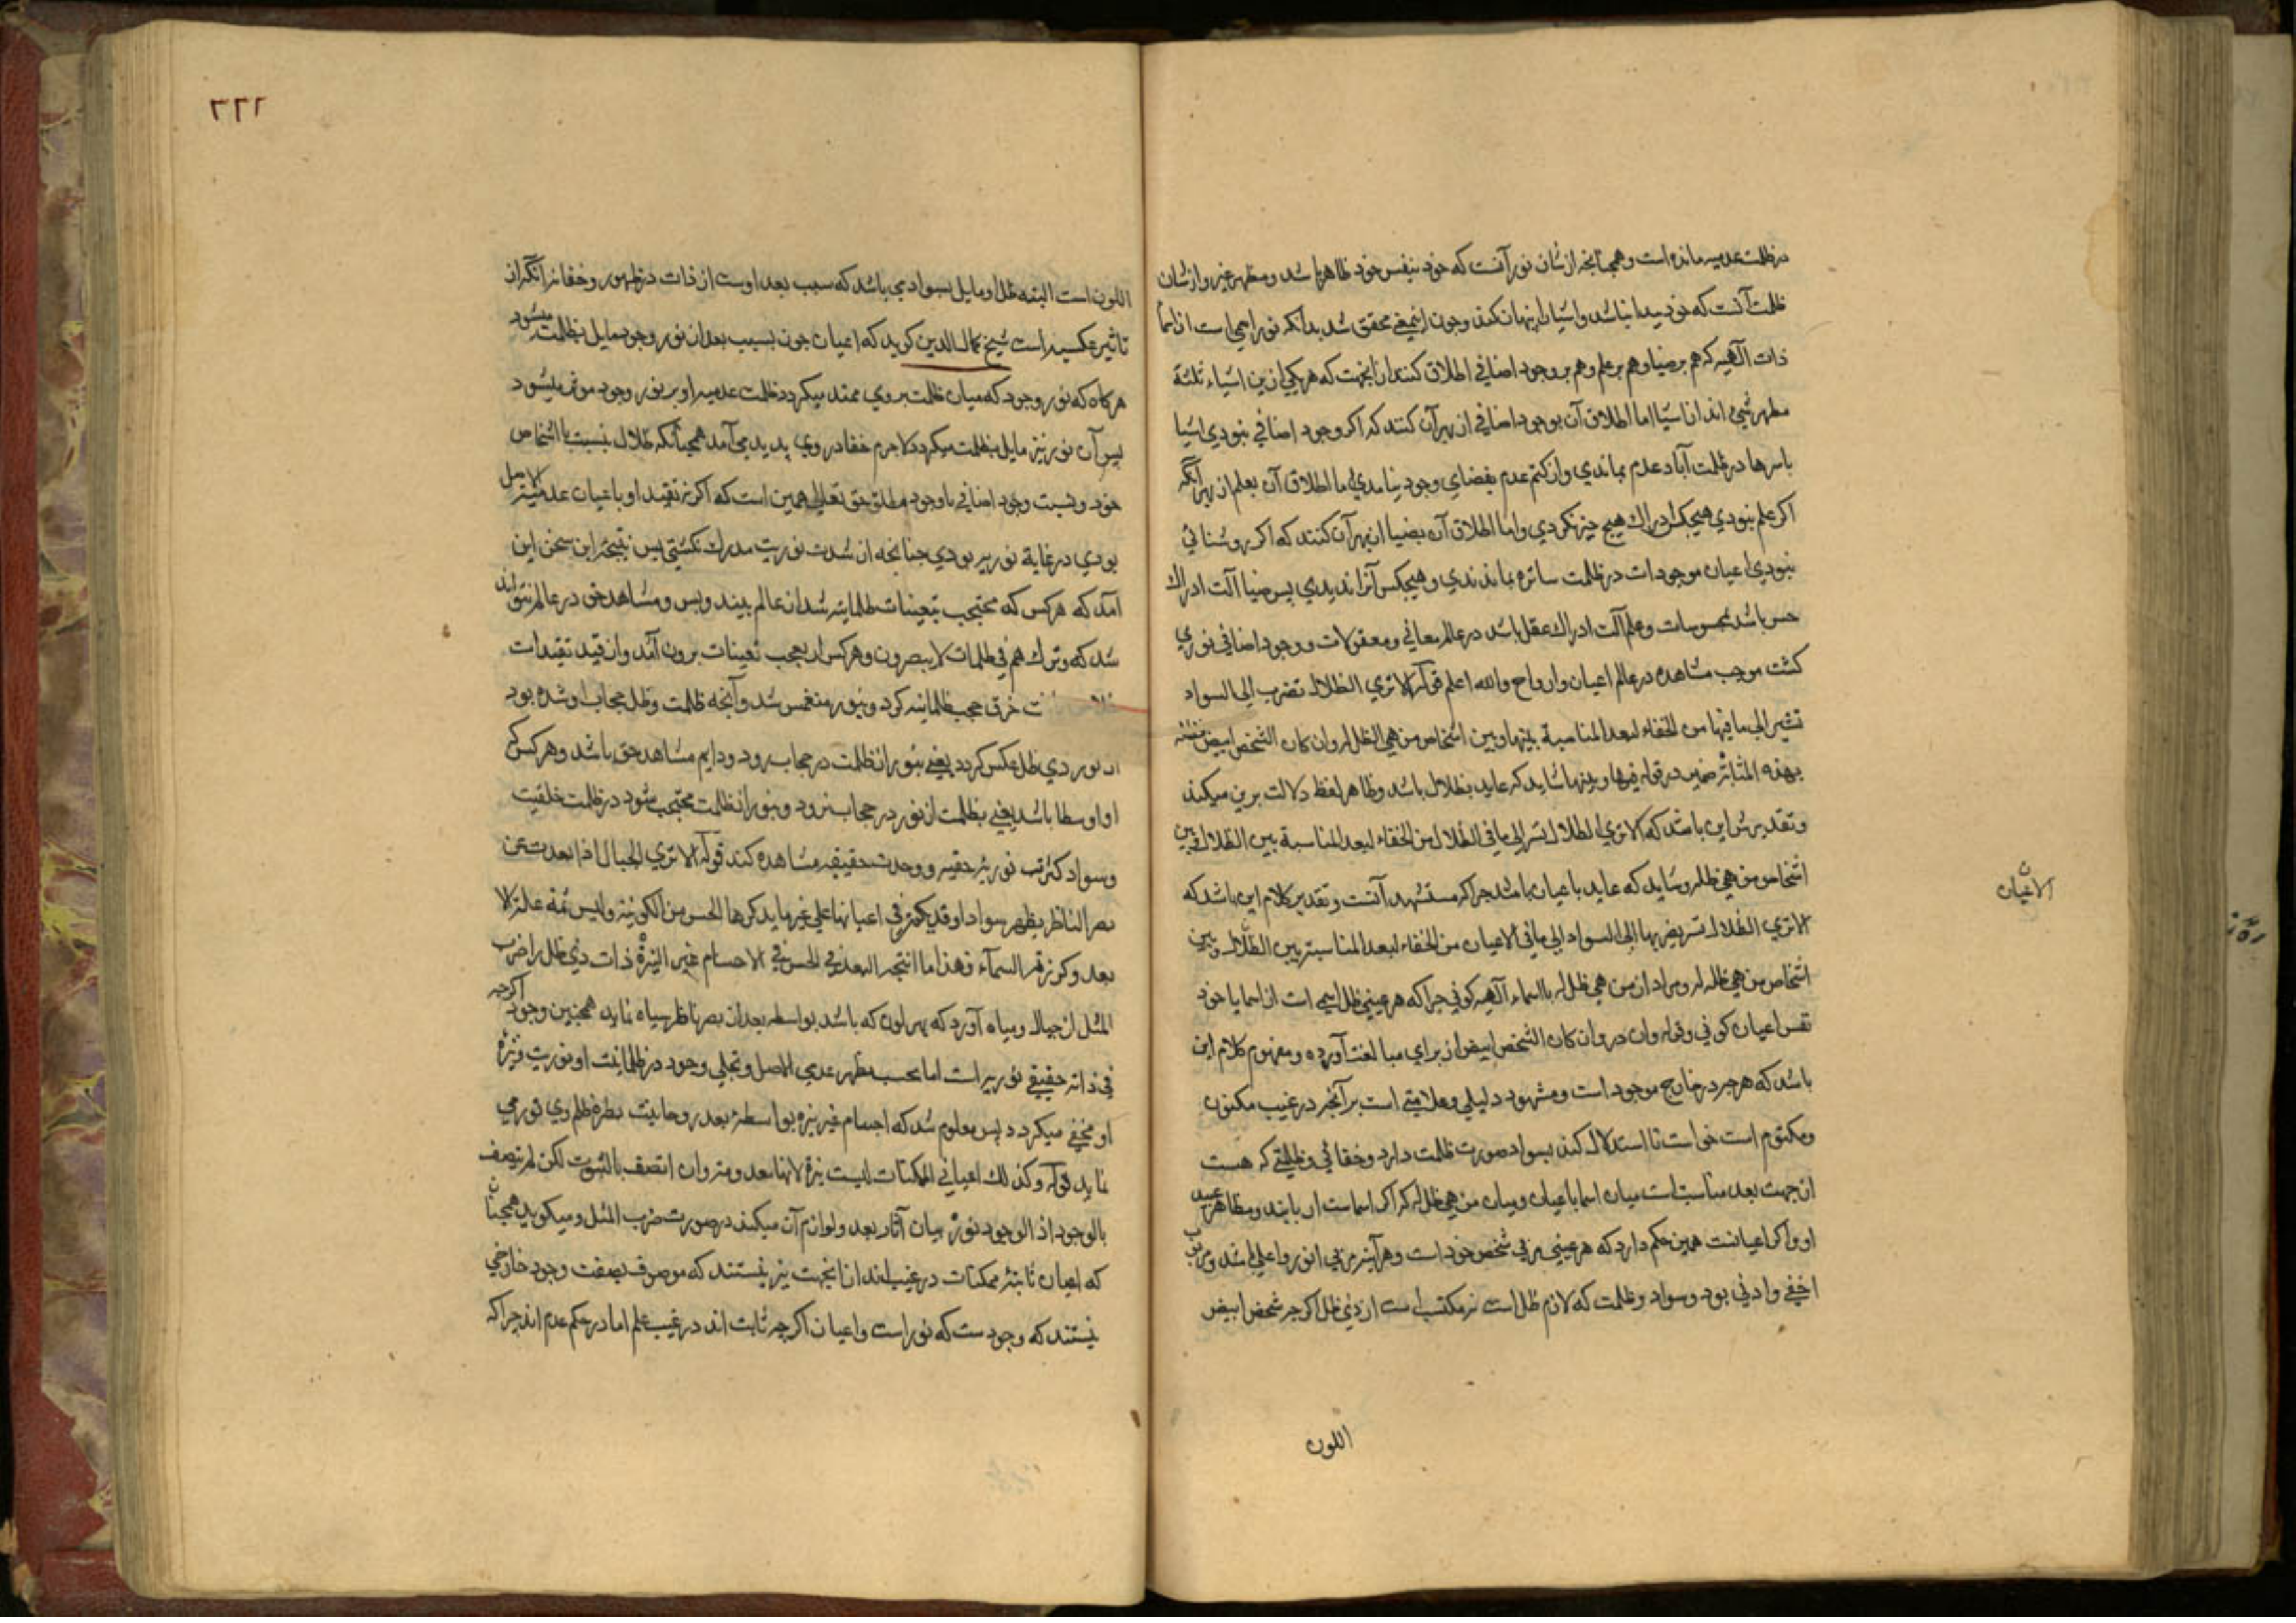 در ظلمت عدمیه مانده است و همچنانچه از شان نور آنست که خود بنفس خود ظاهر باشد و مظهر غیر و از شان
ظلمت آنست که خود پیدا نباشد و اشیا را پنهان کند و چون اینمعنی محقق شد بدانکه نور اسمی است از اسما
ذات آلهیه که هم بر ضیا و هم بر علم و هم بر وجود اضافی اطلاق کنند از آنجهت که هر یکی ازین اشیاء ثلثة
مظهر شی اند از اشیا اما اطلاق آن بوجود اضافی از بهر آن کنند که اگر وجود اضافی نبودی اشیا
باسرها در ظلمت آباد عدم بماندی و از کتم عدم بفضای وجود نیامدی اما اطلاق آن بعلم از بهر آنکه
اکر علم نبودی هیچکس ادراك هیچ چیز نکردی و اما اطلاق آن بضیا از بهر آن کنند که اکر روشنائی
نبودی اعیان موجودات در ظلمت ساتره بماندندی و هیچکس آنرا ندیدی پس ضیا آلت ادراك
حس باشد بمحسوسات و علم آلت ادراك عقل باشد در عالم معانی و معقولات و وجود اضافی نوری
کشت موجب مشاهده در عالم اعیان و ارواح والله اعلم قوله الا تری الظلال تضرب الی السواد
تشیر الی ما فیها من الخفاء لبعد المناسبة بینها و بین اشخاص من هی الظل له وان کان الشخص ابیض فظله
بهذه المثابة ضمیر در قوله فیها و بینها شاید که عاید بظلال باشد و ظاهر لفظ دلالت برین میکند
و تقدیرش این باشد که الا تری الظلال تشیر الی ما فی الظلال من الخفاء لبعد المناسبة بین الظلال و بین
اشخاص من هی ظل له و شاید که عاید باعیان باشد چرا که مستشهد آنست و تقدیر کلام این باشد که
الا تری الظلال تشیر بضربها الی السواد الی ما فی الاعیان من الخفاء لبعد المناسبة بین الظلال و بین
الاعیان
اشخاص من هی ظله له و مراد از من هی ظل له یا اسماء آلهیه کونی چرا که هر عینی ظل اسمی است از اسما یا خود
نفس اعیان کونی و قوله وان در وان کان الشخص ابیض از برای مبالغت آورده و مفهوم کلام این
باشد که هر چه در خارج موجود است و مشهود دلیلی و علامتی است بر آنچه در غیب مکنون
و مکتوم است خواست تا استدلال کند بسواد صورت ظلمت دارد و خفائی و ظلمتی که هست
از جهت بعد مناسبتست میان اسما با اعیان و میان من هی ظل له که اکر اسماست اربابند و مظاهر عبید
او و اکر اعیانست همین حکم دارد که هر عینی مربی شخص خود است و هر آینه مربی انور و اعلی باشد و مربوب
اخفی و ادنی بود و سواد و ظلمت که لازم ظل است نه مکتسب است از ذی ظل اکر چه شخص ابیض
اللون
٢٢٦
اللون است البته ظل او مایل بسوادی باشد که سبب بعد اوست از ذات در ظهور و خفا نه آنکه از
تاثیر عکسیه است شیخ کمال الدین کوید که اعیان چون بسبب بعد از نور وجود مایل بظلمت میشود
هر کاه که نور وجود که میان ظلمت بروی ممتد میکردد ظلمت عدمیه او بر نور وجود موثر میشود
پس آن نور نیز مایل بظلمت میکردد لاجرم خفا در وی پدید می آمد همچنانکه ظلال بنسبت با اشخاص
خود و نسبت وجود اضافی با وجود مطلق حق تعالی همین است که اکر نه تقید او باعیان عدمیة الاصل
بودی در غایة نوریه بودی چنانچه از شدت نوریت مدرك نکشتی پس نتیجه این سخن این
آمد که هر کس که محتجب بتعینات ظلمانیه شد از عالم بیند و بس و مشاهد حق در عالم نتواند
شد که وترکهم فی ظلمات لا یبصرون و هر کس از حجب تعینات برون آمد و از قید تقیدات
خرق حجب ظلمانیه کرد و بنور منغمس شد و آنچه ظلمت و ظل حجاب او شده بود
نور ذی ظل عکس کردد یعنی بنور از ظلمت در حجاب رود و دایم مشاهد حق باشد و هر کس که
او اوسط باشد یعنی بظلمت از نور در حجاب نرود و بنور از ظلمت محتجب نشود در ظلمت خلقیت
و سواد کثرت نوریه حقیه و وحدت حقیقیه مشاهده کند قوله الا تری الجبال اذا بعدت عن
بصر الناظر یظهر سوادا و قد یکون فی اعیانها علی غیر ما یدرکها الحس من اللونیة ولیس ثمه علة الا
بعد وکزرقة السماء فهذا ما انتجه البعد فی الحس فی الاجسام غیر النیرة ذات ذی ظل را ضرب
المثل از جبال و سیاه آورد که بهر لون که باشد بواسطه بعد از بصر ناظر سیاه نماید همچنین وجود اکرچه
فی ذاته حقیقی نوریه است اما بحسب مظهر عدمی الاصل و تجلی وجود در ظلمانیت او نوریت و نیره
او مختفی میکردد پس معلوم شد که اجسام غیر نیره بواسطۀ بعد روحانیت
نماید قوله وکذلك اعیان الممکنات لیست نیرة لانها معدومة وان اتصف بالثبوت لکن لم یتصف
بالوجود اذ الوجود نور بیان آثار بعد و لوازم آن میکند در صورت ضرب المثل و میکوید همچنان
که اعیان ثابتۀ ممکنات در غیب اند از آنجهت نیر نیستند که موصوف بصفت وجود خارجی
نیستند که وجودست که نور است و اعیان اکرچه ثابت اند در غیب علم اما در حکم عدم اند چرا که